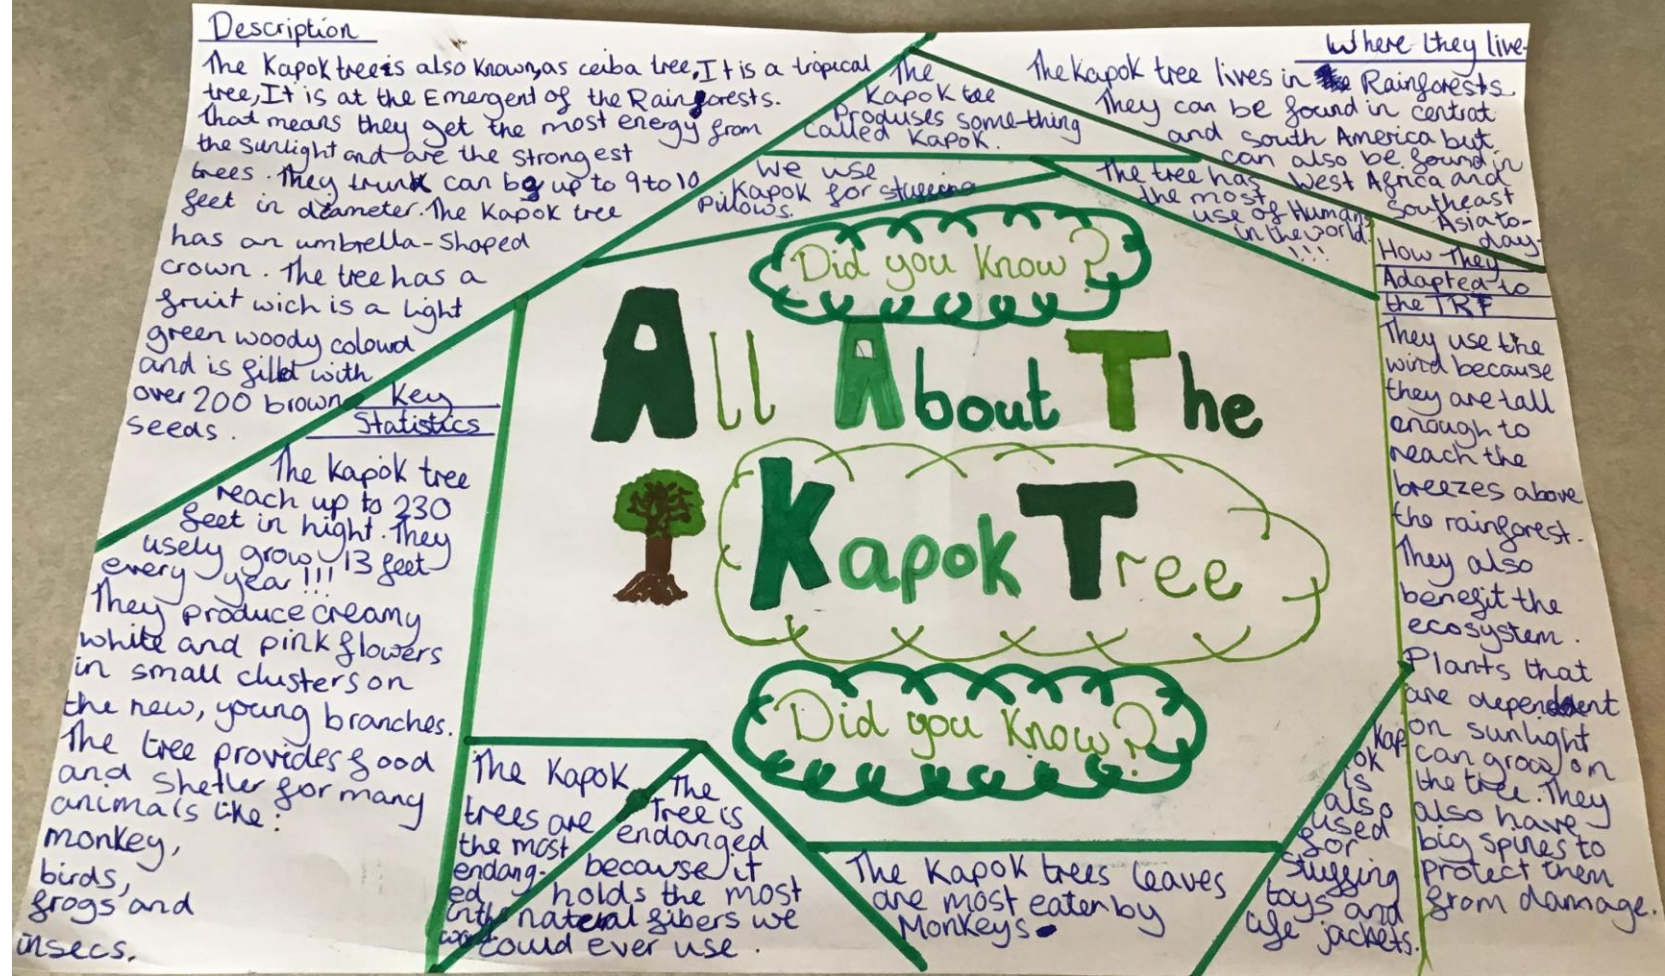 Description
The Kapok treeis also known,as ceiba tree,It is a tropical
tree,It is at the Emergent of the Rainforests.
That means they get the most energy from
the sunlight and are the strongest
trees. They trunk can be up to 9 to 10
feet in diameter. The Kapok tree
has an umbrella-shaped
crown. The tree has a
fruit wich is a light
green woody colourd
and is filld with
over 200 brown
seeds.
Key
Statistics
The Kapok tree
reach up to 230
feet in hight. They
usely grow 13 feet
every year!!!
They produce creamy
white and pink flowers
in small clusters on
the new, young branches.
The tree provides food
and Shetler for many
animals like:
monkey,
birds,
frogs and
insecs.
The
Kapok tee
Produses some-thing
called Kapok.
We use
Kapok for stuffing
Pillows.
Where they live
The Kapok tree lives in Rainforests.
They can be found in central
and south America but
can also be found in
West Africa and
Southeast
Asia to-
day.
The tree has
the most
use of Humans
in the world
!!!!
Did you Know?
All About The
Kapok Tree
Did you Know?
How They
Adapted to
the TRF
They use the
wind because
they are tall
enough to
reach the
breezes above
the rainforest.
They also
benefit the
ecosystem.
Plants that
are dependent
on sunlight
can grow on
the tree. They
also have
big spines to
protect them
from damage.
The Kapok
trees are
the most
endang-
ed
in the
world
The
Tree is
endanged
because it
holds the most
nateral fibers we
could ever use.
The Kapok trees leaves
are most eaten by
Monkeys.
Kap
ok
is
also
used
for
stuffing
toys and
life jackets.